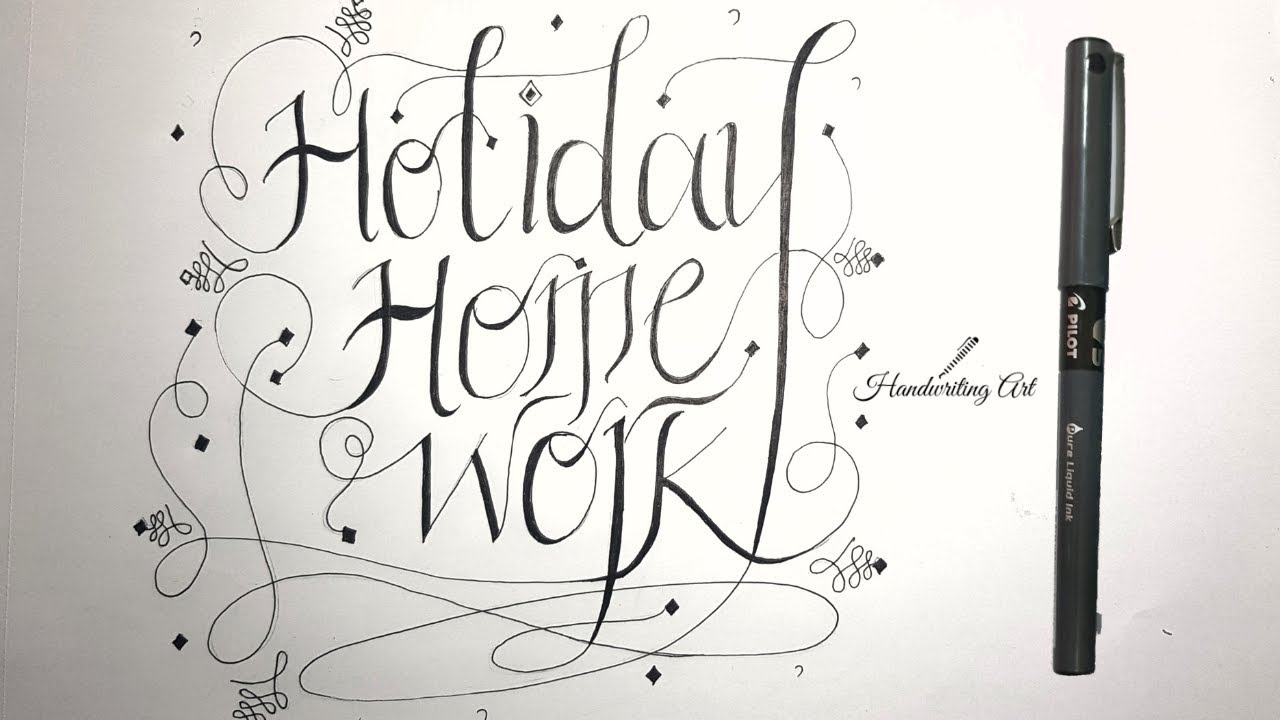 Holiday
Home
Work
Handwriting Art
PILOT
V5
Pure Liquid Ink